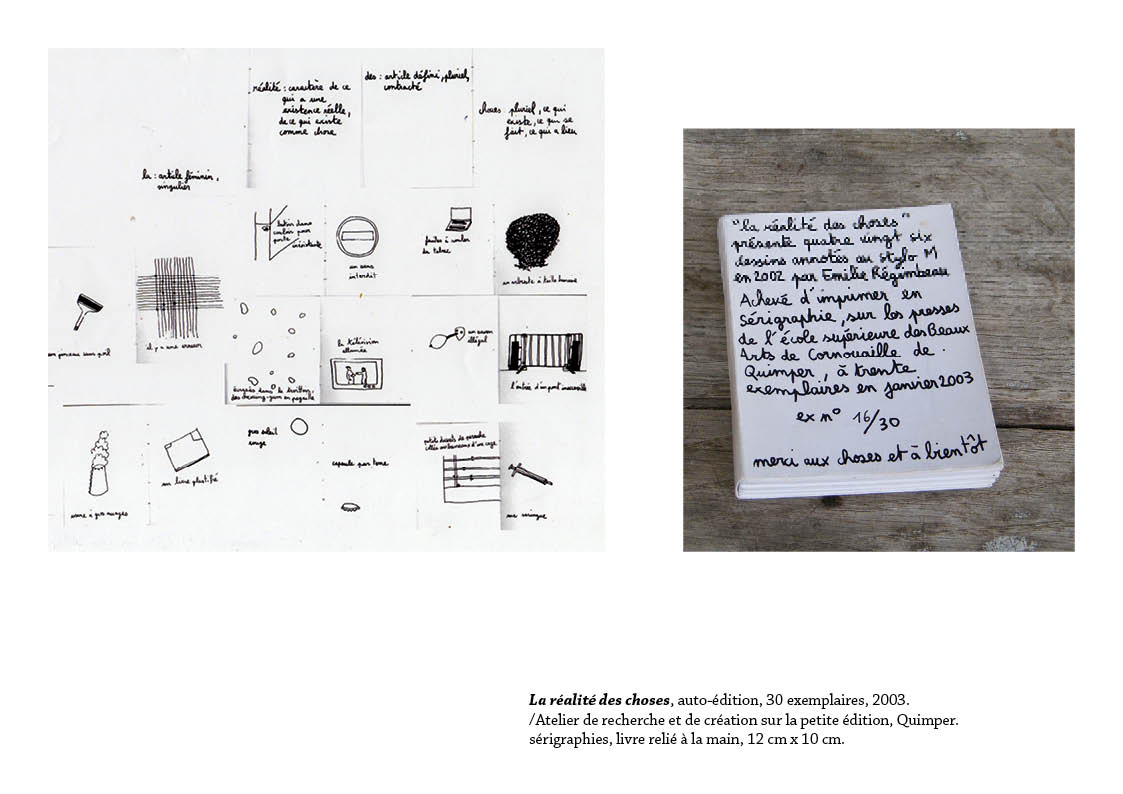 réalité : caractère de ce
qui a une
existence réelle,
de ce qui existe
comme chose
des : article défini, pluriel,
contracté
choses : pluriel, ce qui
existe, ce qui se
fait, ce qui a lieu
la : article féminin,
singulier
porte
inexistante
un sens
interdit
du tabac
il y a une erreur
la télévision
allumée
illégal
un livre plastifié
gros soleil
rouge
capsule par terre
une seringue
"la réalité des choses"
présente quatre vingt six
dessins annotés au stylo M
en 2002 par Emilie Régimbeau
Achevé d'imprimer en
Sérigraphie, sur les presses
de l'école supérieure des Beaux
Arts de Cornouaille de
Quimper, à trente
exemplaires en janvier 2003
ex n° 16/30
merci aux choses et à bientôt
La réalité des choses, auto-édition, 30 exemplaires, 2003.
/Atelier de recherche et de création sur la petite édition, Quimper.
sérigraphies, livre relié à la main, 12 cm x 10 cm.